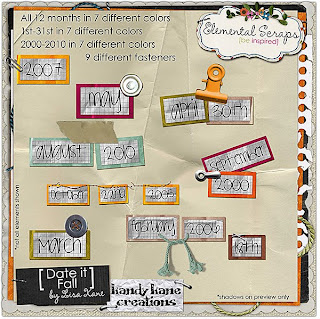 All 12 months in 7 different colors
1st-31st in 7 different colors
2000-2010 in 7 different colors
9 different fasteners
Elemental Scraps
{be inspired}
2007
may
april 30th
august 2010
september
2000
october 22nd 2003
february 2006
march
*not all elements shown
[Date it]
Fall
by Lisa Kane
kandy kane
creations
*shadows on preview only